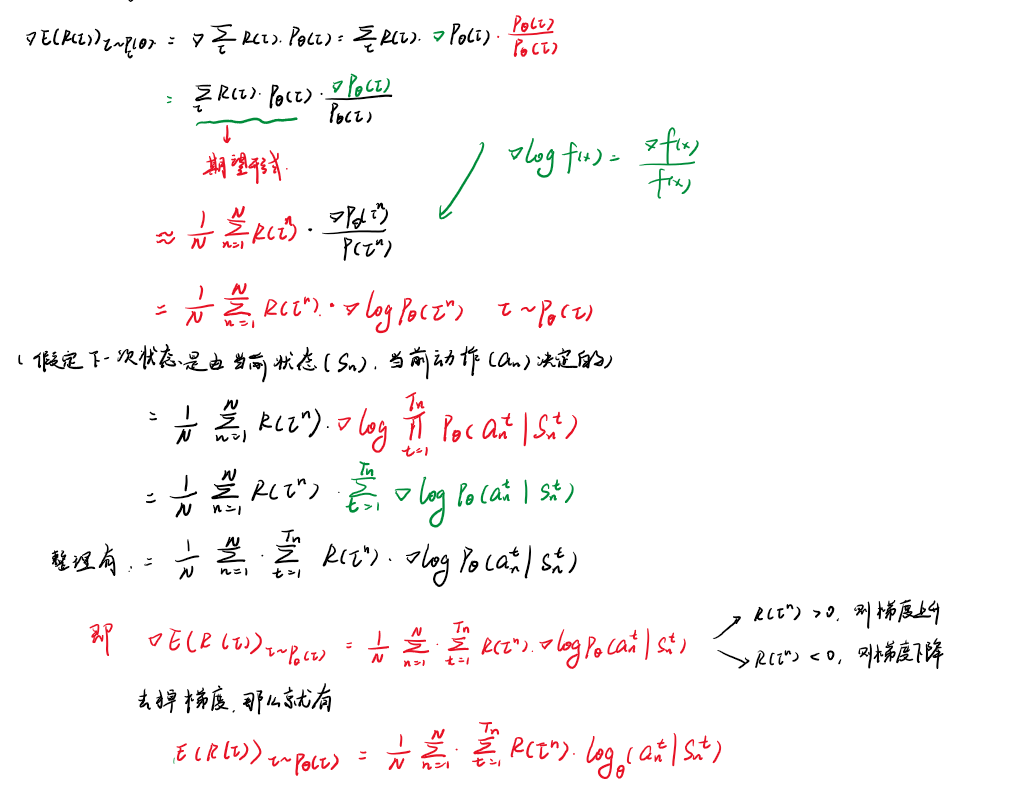 ∇E(R(τ))_{τ∼P_θ(τ)} = ∇ Σ_τ R(τ)·P_θ(τ) = Σ_τ R(τ)·∇P_θ(τ)·P_θ(τ)/P_θ(τ)
= Σ_τ R(τ)·P_θ(τ)·∇P_θ(τ)/P_θ(τ)
期望形式.
∇log f(x) = ∇f(x)/f(x)
≈ 1/N Σ_{n=1}^{N} R(τ^n)·∇P_θ(τ^n)/P(τ^n)
= 1/N Σ_{n=1}^{N} R(τ^n)·∇log P_θ(τ^n) τ∼P_θ(τ)
(假定下一次状态是由当前状态(S_n), 当前动作(a_n)决定的)
= 1/N Σ_{n=1}^{N} R(τ^n)·∇log ∏_{t=1}^{T_n} P_θ(a_n^t|S_n^t)
= 1/N Σ_{n=1}^{N} R(τ^n)·Σ_{t=1}^{T_n} ∇log P_θ(a_n^t|S_n^t)
整理有. = 1/N Σ_{n=1}^{N}·Σ_{t=1}^{T_n} R(τ^n)·∇log P_θ(a_n^t|S_n^t)
即 ∇E(R(τ))_{τ∼P_θ(τ)} = 1/N Σ_{n=1}^{N}·Σ_{t=1}^{T_n} R(τ^n)·∇log P_θ(a_n^t|S_n^t)
R(τ^n)>0, 则梯度上升
R(τ^n)<0, 则梯度下降
去掉梯度, 那么就有
E(R(τ))_{τ∼P_θ(τ)} = 1/N Σ_{n=1}^{N}·Σ_{t=1}^{T_n} R(τ^n)·log_θ(a_n^t|S_n^t)